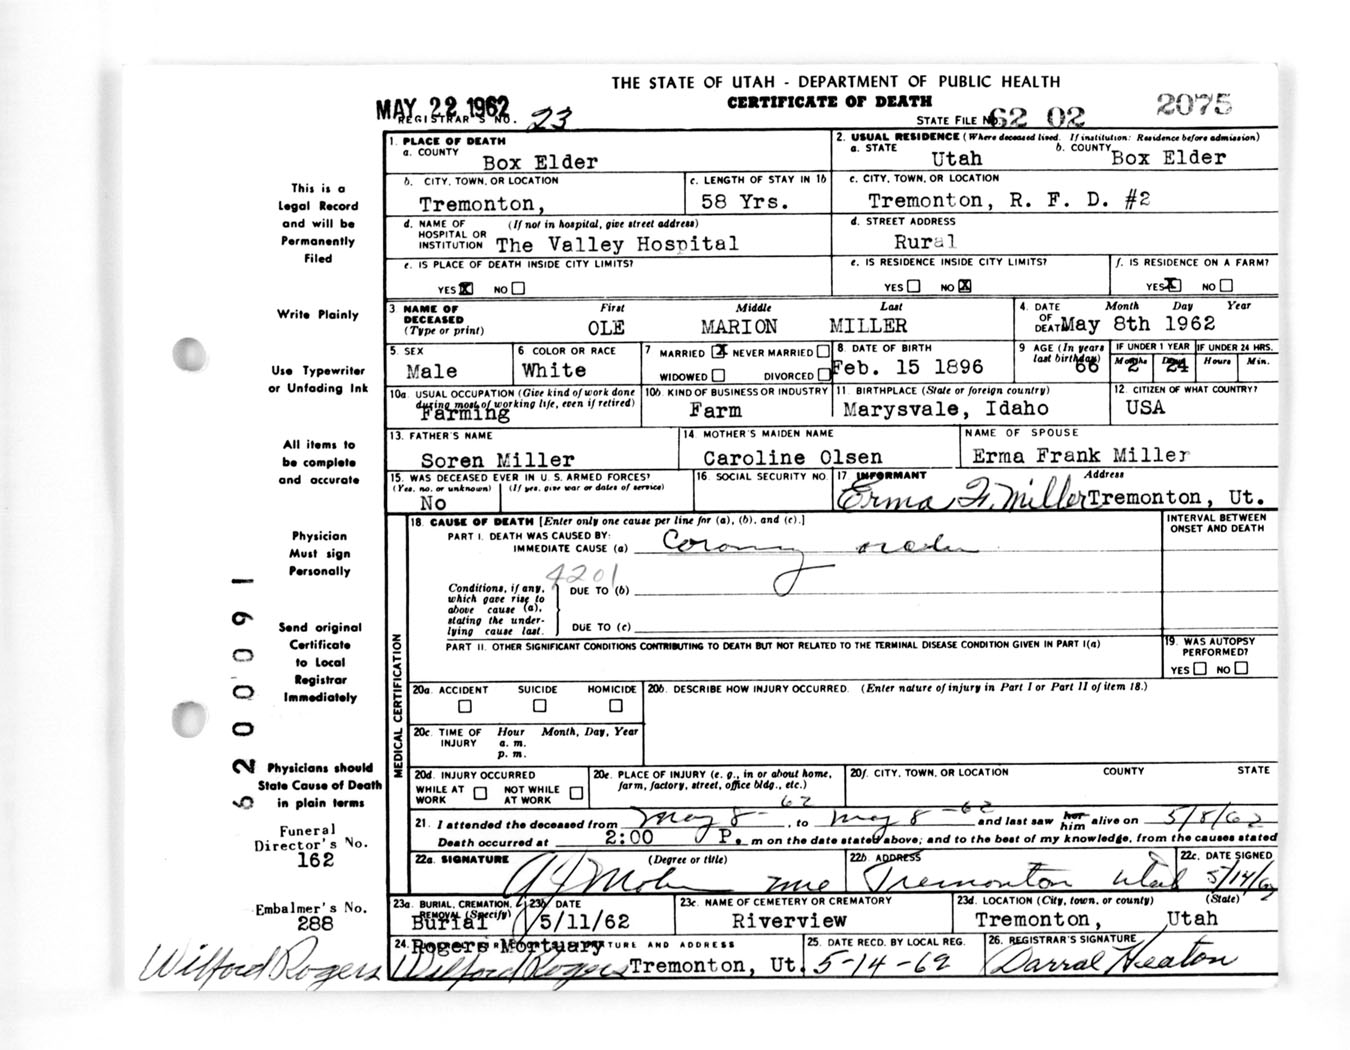 THE STATE OF UTAH - DEPARTMENT OF PUBLIC HEALTH
MAY 22 1962 CERTIFICATE OF DEATH 2075
REGISTRAR'S NO. 23 STATE FILE NO. 62 02
1. PLACE OF DEATH
a. COUNTY Box Elder
2. USUAL RESIDENCE (Where deceased lived. If institution: Residence before admission)
a. STATE Utah b. COUNTY Box Elder
b. CITY, TOWN, OR LOCATION Tremonton,
c. LENGTH OF STAY IN 1b 58 Yrs.
c. CITY, TOWN, OR LOCATION Tremonton, R. F. D. #2
d. NAME OF HOSPITAL OR INSTITUTION (If not in hospital, give street address) The Valley Hospital
d. STREET ADDRESS Rural
e. IS PLACE OF DEATH INSIDE CITY LIMITS? YES X NO
e. IS RESIDENCE INSIDE CITY LIMITS? YES NO X
f. IS RESIDENCE ON A FARM? YES X NO
3 NAME OF DECEASED (Type or print) First Middle Last
OLE MARION MILLER
4. DATE OF DEATH Month Day Year
May 8th 1962
5. SEX Male
6 COLOR OR RACE White
7 MARRIED X NEVER MARRIED WIDOWED DIVORCED
8. DATE OF BIRTH Feb. 15 1896
9 AGE (In years last birthday) 66
IF UNDER 1 YEAR Months 2 Days 24
IF UNDER 24 HRS. Hours Min.
10a. USUAL OCCUPATION (Give kind of work done during most of working life, even if retired) Farming
10b. KIND OF BUSINESS OR INDUSTRY Farm
11. BIRTHPLACE (State or foreign country) Marysvale, Idaho
12. CITIZEN OF WHAT COUNTRY? USA
13. FATHER'S NAME Soren Miller
14. MOTHER'S MAIDEN NAME Caroline Olsen
NAME OF SPOUSE Erma Frank Miller
15. WAS DECEASED EVER IN U. S. ARMED FORCES? (Yes, no, or unknown) (If yes, give war or dates of service) No
16. SOCIAL SECURITY NO.
17. INFORMANT Address
Erma F. Miller Tremonton, Ut.
18. CAUSE OF DEATH [Enter only one cause per line for (a), (b), and (c).]
INTERVAL BETWEEN ONSET AND DEATH
PART I. DEATH WAS CAUSED BY:
IMMEDIATE CAUSE (a)
4201
Conditions, if any, which gave rise to above cause (a), stating the underlying cause last.
DUE TO (b)
DUE TO (c)
PART II. OTHER SIGNIFICANT CONDITIONS CONTRIBUTING TO DEATH BUT NOT RELATED TO THE TERMINAL DISEASE CONDITION GIVEN IN PART I(a)
19. WAS AUTOPSY PERFORMED? YES NO
MEDICAL CERTIFICATION
20a. ACCIDENT SUICIDE HOMICIDE
20b. DESCRIBE HOW INJURY OCCURRED. (Enter nature of injury in Part I or Part II of item 18.)
20c. TIME OF INJURY Hour a. m. p. m. Month, Day, Year
20d. INJURY OCCURRED WHILE AT WORK NOT WHILE AT WORK
20e. PLACE OF INJURY (e. g., in or about home, farm, factory, street, office bldg., etc.)
20f. CITY, TOWN, OR LOCATION COUNTY STATE
21. I attended the deceased from May 8-62, to May 8-62 and last saw her him alive on 5/8/62
Death occurred at 2:00 P. m on the date stated above; and to the best of my knowledge, from the causes stated
22a. SIGNATURE (Degree or title)
22b. ADDRESS Tremonton Utah
22c. DATE SIGNED 5/14/62
23a. BURIAL, CREMATION, REMOVAL (Specify) Burial
23b DATE 5/11/62
23c. NAME OF CEMETERY OR CREMATORY Riverview
23d. LOCATION (City, town, or county) (State) Tremonton, Utah
24. Rogers Mortuary SIGNATURE AND ADDRESS
Wilford Rogers Tremonton, Ut.
25. DATE RECD. BY LOCAL REG. 5-14-62
26. REGISTRAR'S SIGNATURE Darral Heaton
This is a
Legal Record
and will be
Permanently
Filed
Write Plainly
Use Typewriter
or Unfading Ink
All items to
be complete
and accurate
Physician
Must sign
Personally
Send original
Certificate
to Local
Registrar
Immediately
Physicians should
State Cause of Death
in plain terms
Funeral
Director's No.
162
Embalmer's No.
288
Wilford Rogers
5200091